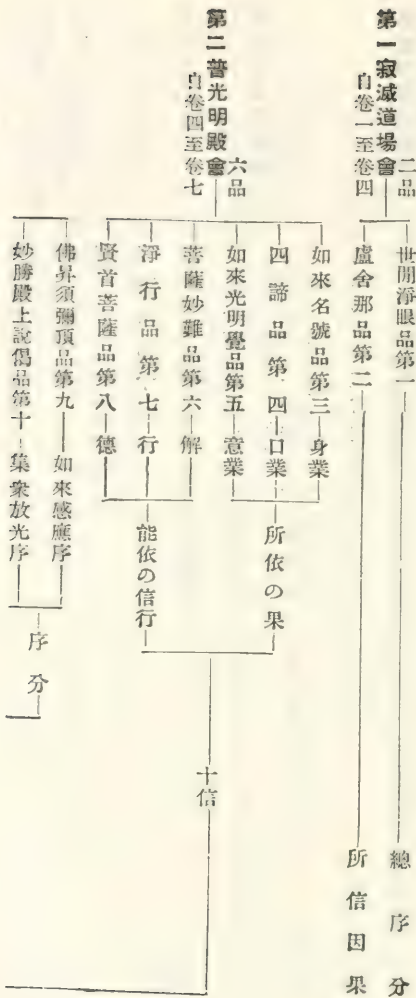 第一寂滅道場會 二品
自卷一至卷四
世間淨眼品第一
總序分
盧舍那品第二
所信因果
第二普光明殿會 六品
自卷四至卷七
如來名號品第三
身業
四諦品第四
口業
如來光明覺品第五
意業
所依の果
菩薩妙難品第六
解
淨行品第七
行
賢首菩薩品第八
德
能依の信行
十信
佛昇須彌頂品第九
如來感應序
妙勝殿上說偈品第十
集衆放光序
序分